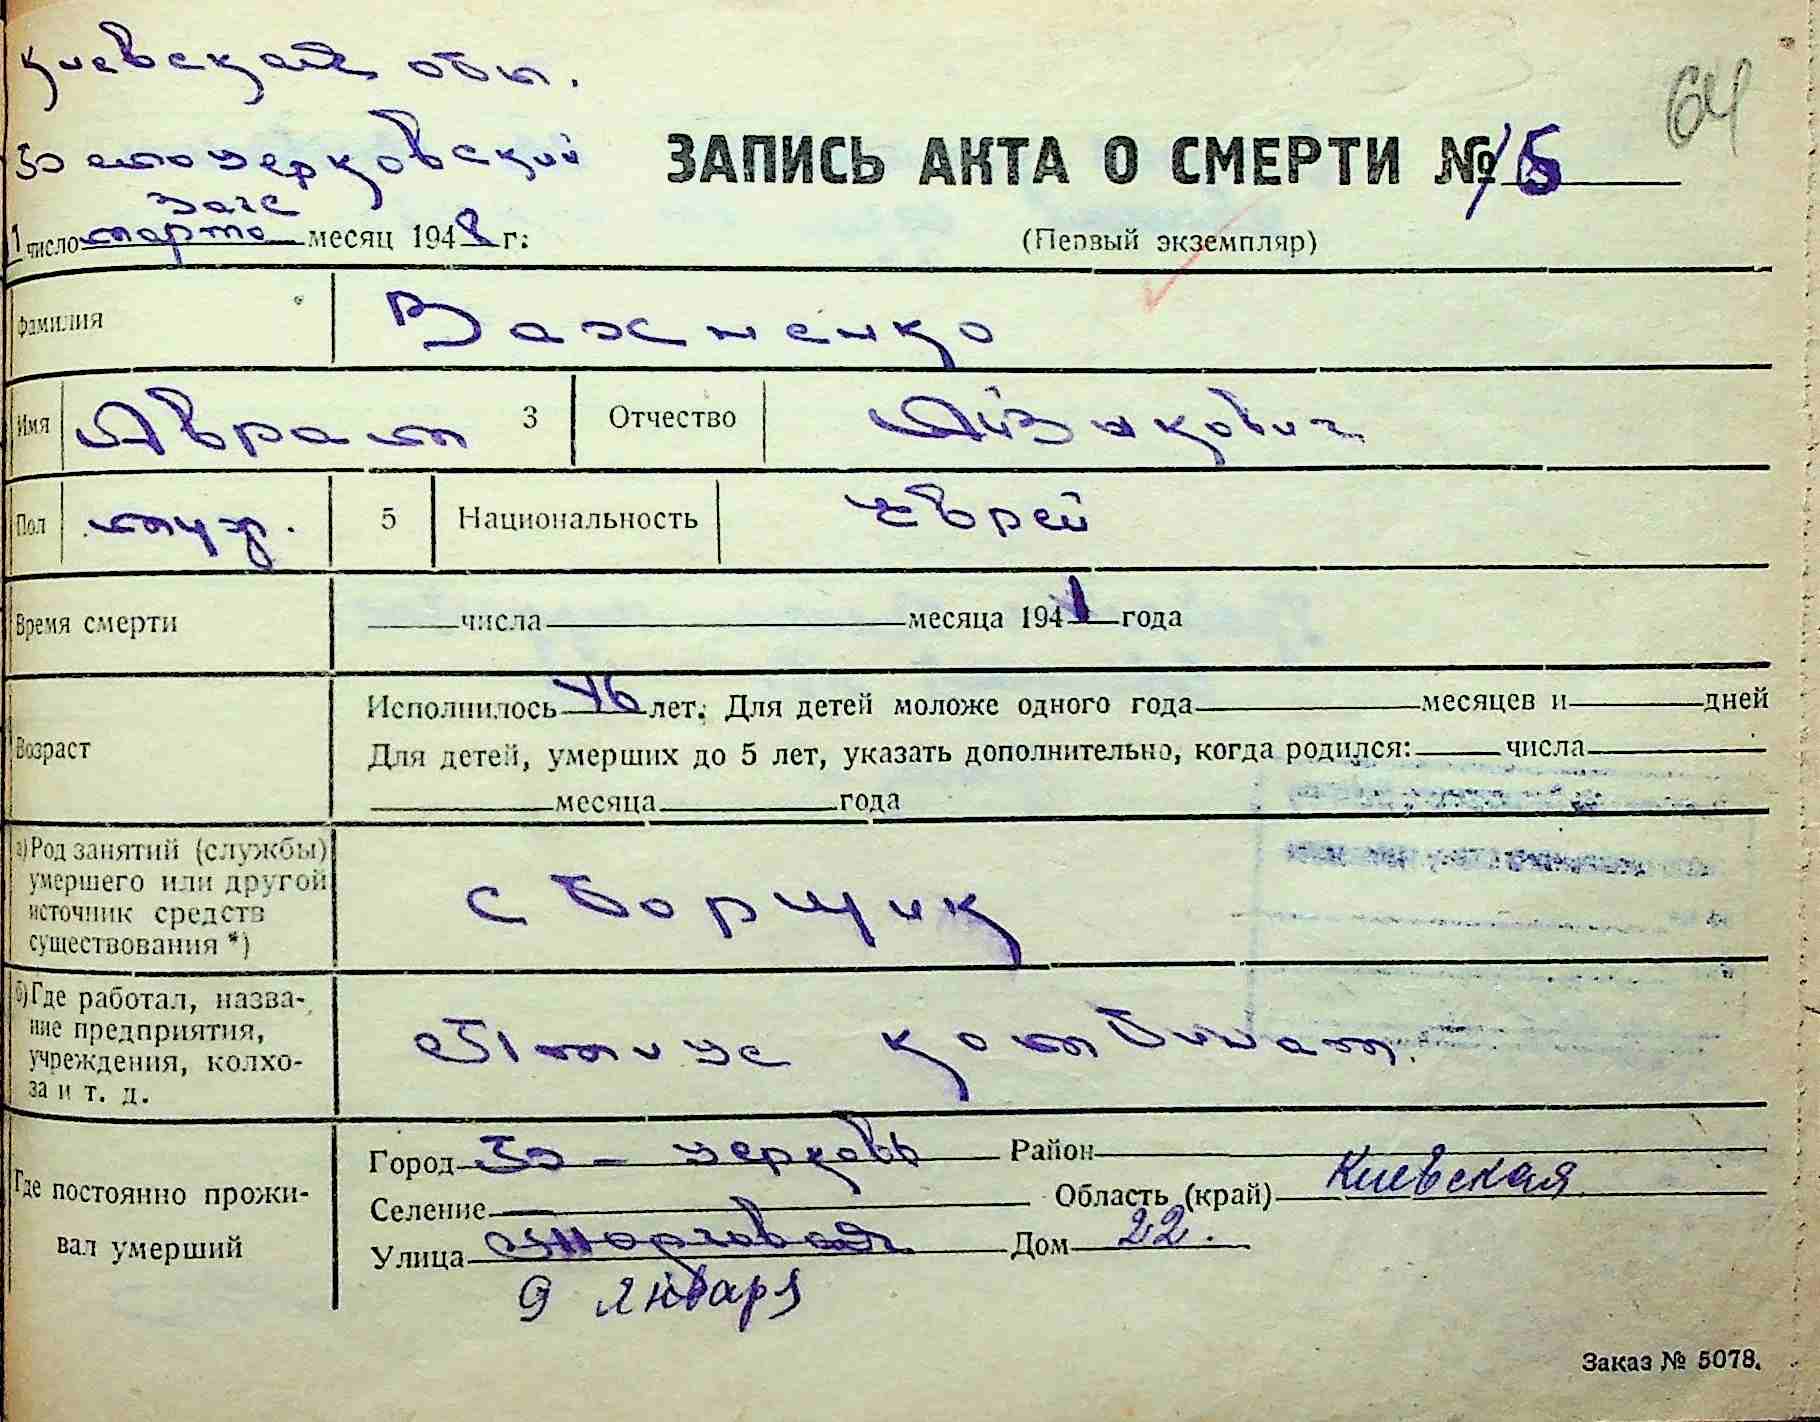 Киевская обл.
64
Белоцерковский
ЗАПИСЬ АКТА О СМЕРТИ № 15
Загс
1 число марта месяц 1948 г.
(Первый экземпляр)
Фамилия Важненко
Имя Аврам 3 Отчество Айзикович
Пол муж. 5 Национальность Еврей
Время смерти числа месяца 1941 года
Исполнилось 46 лет. Для детей моложе одного года месяцев и дней
Возраст
Для детей, умерших до 5 лет, указать дополнительно, когда родился: числа
месяца года
а) Род занятий (службы)
умершего или другой
источник средств
существования *)
сборщик
б) Где работал, назва-
ние предприятия,
учреждения, колхо-
за и т. д.
комбинат.
Город Б-церковь Район
Где постоянно прожи-
вал умерший
Селение Область (край) Киевская
Улица Торговая Дом 22.
9 Января
Заказ № 5078.